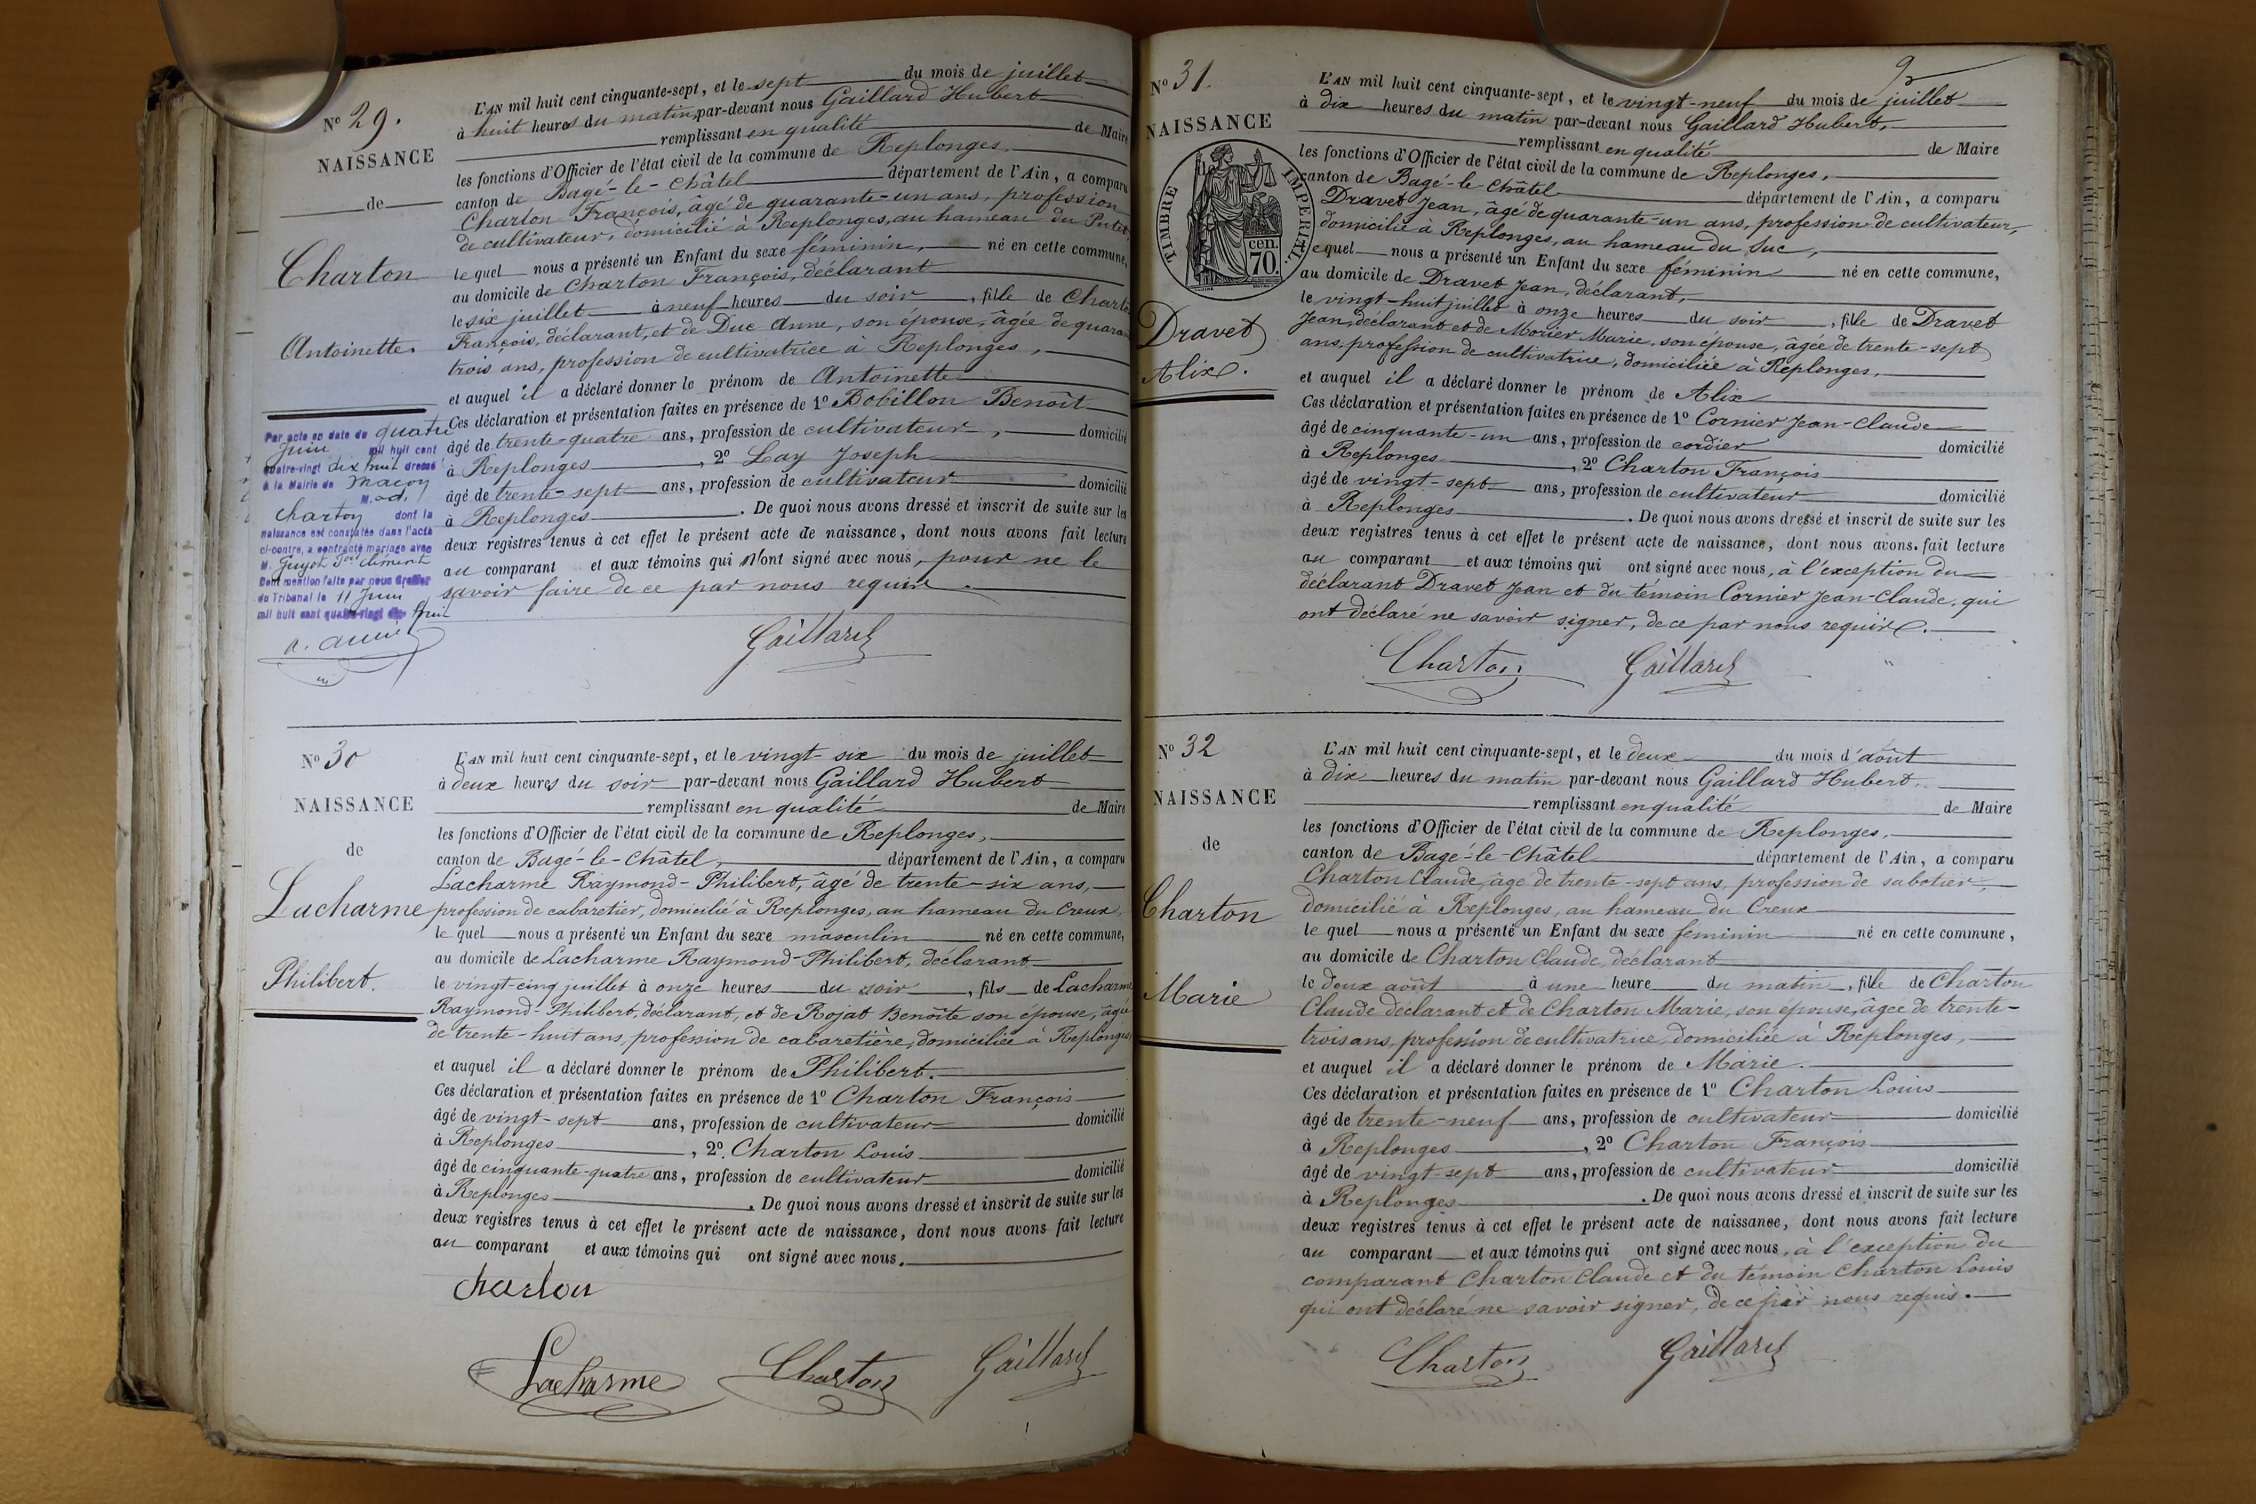 N° 29.
NAISSANCE
de
Charton
Antoinette.
L'AN mil huit cent cinquante-sept, et le sept du mois de juillet
à huit heures du matin, par-devant nous Gaillard Hubert
remplissant en qualité de Maire
les fonctions d'Officier de l'état civil de la commune de Replonges,
canton de Bagé-le-Châtel département de l'Ain, a comparu
Charton François, âgé de quarante-un ans, profession
de cultivateur, domicilié à Replonges, au hameau du
le quel nous a présenté un Enfant du sexe féminin, né en cette commune,
au domicile de Charton François, déclarant
le six juillet à neuf heures du soir, fille de
François, déclarant, et de Duc Anne, son épouse, âgée de
trois ans, profession de cultivatrice à Replonges,
et auquel il a déclaré donner le prénom de Antoinette
Ces déclaration et présentation faites en présence de 1° Bobillon Benoît
âgé de trente-quatre ans, profession de cultivateur, domicilié
à Replonges, 2° Lay Joseph
âgé de trente-sept ans, profession de cultivateur domicilié
à Replonges. De quoi nous avons dressé et inscrit de suite sur les
deux registres tenus à cet effet le présent acte de naissance, dont nous avons fait lecture
au comparant et aux témoins qui n'ont signé avec nous, pour ne le
savoir faire de ce par nous requis.
Gaillard
Par acte en date du quatre
Juin mil huit cent
quatre-vingt dix huit dressé
à la Mairie de Macon
M. ad.
Charton dont la
naissance est constatée dans l'acte
ci-contre, a contracté mariage avec
M. Guyot Clément
Dont mention faite par nous Greffier
du Tribunal le 11 Juin
mil huit cent quatre-vingt dix huit
N° 30
NAISSANCE
de
Lacharme
Philibert.
L'AN mil huit cent cinquante-sept, et le vingt six du mois de juillet
à deux heures du soir par-devant nous Gaillard Hubert
remplissant en qualité de Maire
les fonctions d'Officier de l'état civil de la commune de Replonges,
canton de Bagé-le-Châtel, département de l'Ain, a comparu
Lacharme Raymond-Philibert, âgé de trente-six ans,
profession de cabaretier, domicilié à Replonges, au hameau du Creux,
le quel nous a présenté un Enfant du sexe masculin né en cette commune,
au domicile de Lacharme Raymond-Philibert, déclarant
le vingt-cinq juillet à onze heures du soir, fils de Lacharme
Raymond-Philibert, déclarant, et de Rojat Benoîte son épouse, âgée
de trente-huit ans, profession de cabaretière, domiciliée à Replonges,
et auquel il a déclaré donner le prénom de Philibert.
Ces déclaration et présentation faites en présence de 1° Charton François
âgé de vingt-sept ans, profession de cultivateur domicilié
à Replonges, 2° Charton Louis
âgé de cinquante-quatre ans, profession de cultivateur domicilié
à Replonges. De quoi nous avons dressé et inscrit de suite sur les
deux registres tenus à cet effet le présent acte de naissance, dont nous avons fait lecture
au comparant et aux témoins qui ont signé avec nous.
Charlon
Lacharme Charton Gaillard
92
N° 31.
NAISSANCE
TIMBRE IMPERIAL.
cen.
70.
Dravet
Alix.
L'AN mil huit cent cinquante-sept, et le vingt-neuf du mois de juillet
à dix heures du matin par-devant nous Gaillard Hubert,
remplissant en qualité de Maire
les fonctions d'Officier de l'état civil de la commune de Replonges,
canton de Bagé-le-Châtel département de l'Ain, a comparu
Dravet Jean, âgé de quarante-un ans, profession de cultivateur,
domicilié à Replonges, au hameau du Suc,
lequel nous a présenté un Enfant du sexe féminin né en cette commune,
au domicile de Dravet Jean, déclarant,
le vingt-huit juillet à onze heures du soir, fille de Dravet
Jean, déclarant et de Morier Marie, son épouse, âgée de trente-sept
ans, profession de cultivatrice, domiciliée à Replonges,
et auquel il a déclaré donner le prénom de Alix
Ces déclaration et présentation faites en présence de 1° Cornier Jean-Claude
âgé de cinquante-un ans, profession de cordier domicilié
à Replonges, 2° Charton François
âgé de vingt-sept ans, profession de cultivateur domicilié
à Replonges. De quoi nous avons dressé et inscrit de suite sur les
deux registres tenus à cet effet le présent acte de naissance, dont nous avons fait lecture
au comparant et aux témoins qui ont signé avec nous, à l'exception du
déclarant Dravet Jean et du témoin Cornier Jean-Claude, qui
ont déclaré ne savoir signer, de ce par nous requis.
Charton Gaillard
N° 32
NAISSANCE
de
Charton
Marie
L'AN mil huit cent cinquante-sept, et le deux du mois d'août
à dix heures du matin par-devant nous Gaillard Hubert,
remplissant en qualité de Maire
les fonctions d'Officier de l'état civil de la commune de Replonges,
canton de Bagé-le-Châtel département de l'Ain, a comparu
Charton Claude, âgé de trente-sept ans, profession de sabotier,
domicilié à Replonges, au hameau du Creux
le quel nous a présenté un Enfant du sexe féminin né en cette commune,
au domicile de Charton Claude, déclarant
le deux août à une heure du matin, fille de Charton
Claude déclarant et de Charton Marie, son épouse, âgée de trente-
trois ans, profession de cultivatrice, domiciliée à Replonges,
et auquel il a déclaré donner le prénom de Marie.
Ces déclaration et présentation faites en présence de 1° Charton Louis
âgé de trente-neuf ans, profession de cultivateur domicilié
à Replonges, 2° Charton François
âgé de vingt-sept ans, profession de cultivateur domicilié
à Replonges. De quoi nous avons dressé et inscrit de suite sur les
deux registres tenus à cet effet le présent acte de naissance, dont nous avons fait lecture
au comparant et aux témoins qui ont signé avec nous, à l'exception du
comparant Charton Claude et du témoin Charton Louis
qui ont déclaré ne savoir signer, de ce par nous requis.
Charton Gaillard